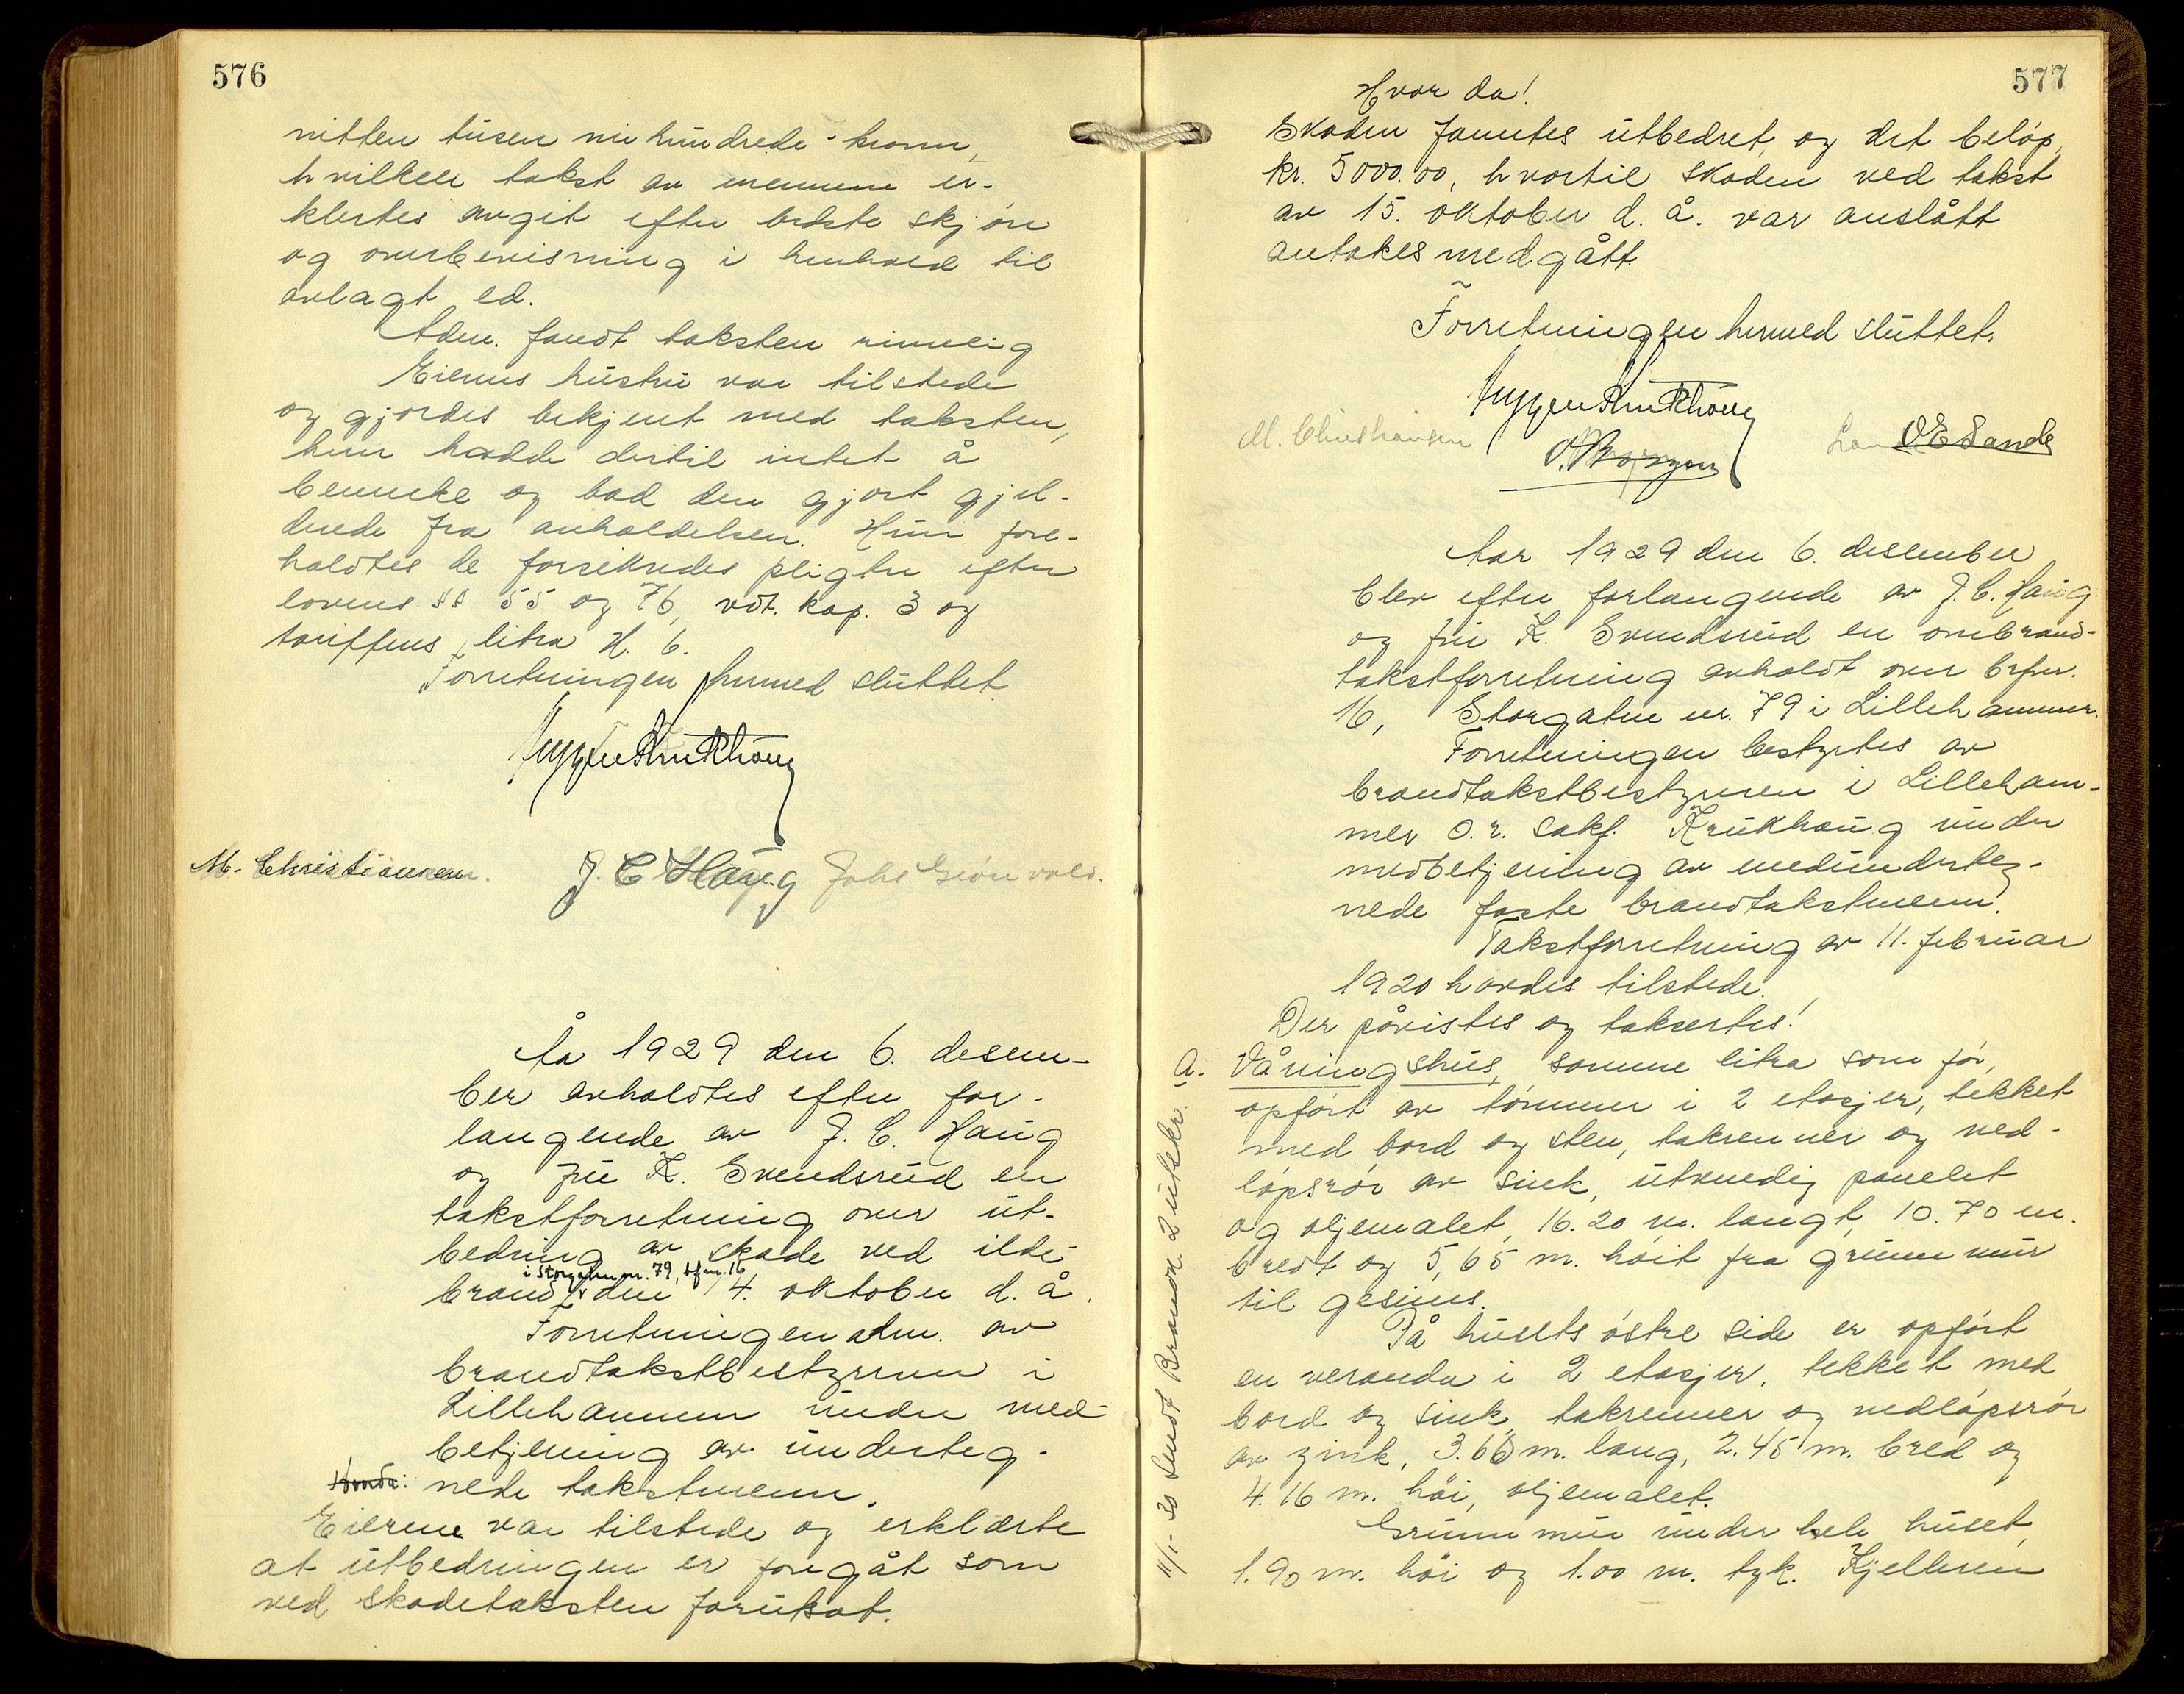 576
nitten tusen nihundrede - kroner,
hvilken takst av mennene er-
klertes avgit efter bedste skjøn
og overbevisning i henhold til
avlagt ed.
Adm. fandt taksten rimelig
Eierens hustru var tilstede
og gjordes bekjent med taksten,
hun hadde dertil intet å
bemerke og bad den gjort gjel-
dende fra avholdelsen. Hun fore-
holdtes de forsikredes pligter efter
lovens §§ 55 og 76, vdt. kap. 3 og
tariffens litra H. 6.
Forretningen hermed sluttet
M. Christiansen. J. C. Haug Johs Grønvold.
År 1929 den 6. desem-
ber avholdtes efter for-
langende av J. C. Haug
og fru K. Svendsrud en
takstforretning over ut-
bedring av skade ved ilde-
i Storgaten nr. 79, bfnr. 16
brand den 14. oktober d. å.
Forretningen adm. av
brandtakstbestyreren i
Lillehammer under med-
betjening av underteg-
Hvorda: nede takstmenn.
Eierene var tilstede og erklærte
at utbedringen er foregåt som
ved skadetaksten forutsat.
577
Hvor da!
Skaden fantes utbedret, og det beløp,
kr. 5000.00, hvortil skaden ved takst
av 15. oktober d. å. var anslått
antakes medgått.
Forretningen hermed sluttet.
M. Christiansen
O E Sande
Aar 1929 den 6. desember
blev efter forlangende av J. C. Haug
og fru K. Svendsrud en ombrand-
takstforretning avholdt over brfnr.
16, Storgaten nr. 79 i Lillehammer.
Forretningen bestyrtes av
brandtakstbestyreren i Lilleham-
mer o.r. sakf. Krukhaug under
medbetjening av medunderteg-
nede faste brandtakstmenn.
Takstforretning av 11. februar
1920 havdes tilstede.
Der påvistes og taksertes!
A. Våningshus, samme litra som før,
opført av tømmer i 2 etasjer, tekket
med bord og sten, takrenner og ned-
løpsrør av sink, utvendig panelet
og oljemalet, 16.20 m. langt, 10.70 m.
bredt og 5,65 m. høit fra grunnmur
til gesims.
På husets østre side er opført
en veranda i 2 etasjer, tekket med
bord og sink, takrenner og nedløpsrør
av zink, 3.66 m. lang, 2.45 m. bred og
4.16 m. høi, oljemalet.
Grunnmur under hele huset,
1.90 m. høi og 1.00 m. tyk. Kjelleren
11/1-30 sendt Brandk. 2 utskr.